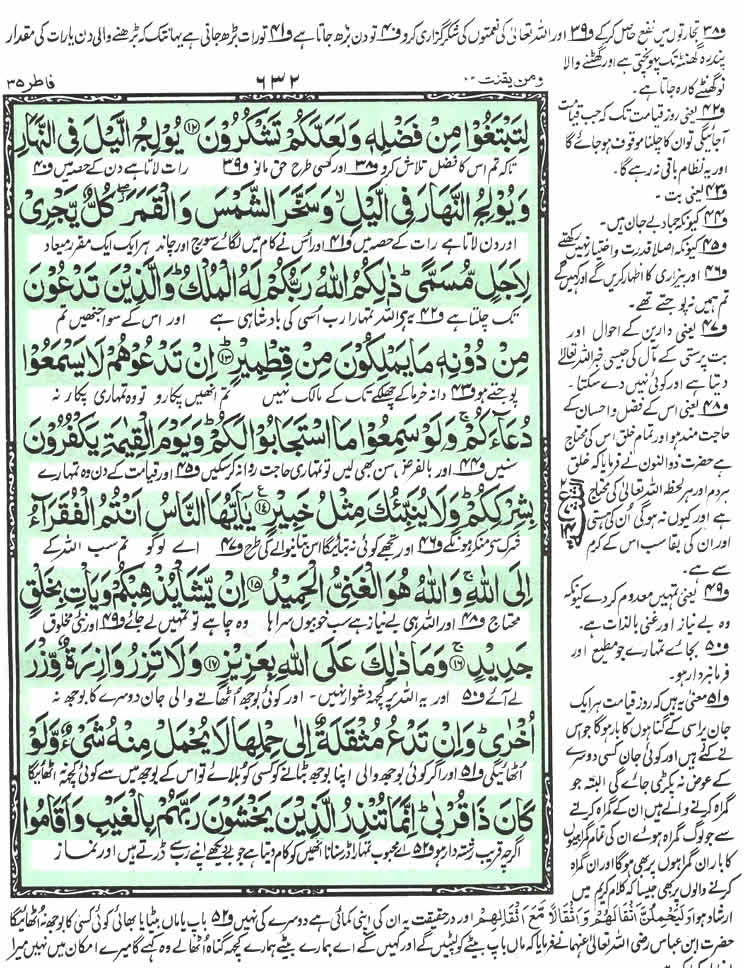 و۳۸ تجارتوں میں نفع حاصل کرکے و۳۹ اور اللہ تعالیٰ کی نعمتوں کی شکر گزاری کرو و۴۰ تو دن بڑھ جاتا ہے و۴۱ تو رات بڑھ جاتی ہے یہانتک کہ بڑھنے والی دن یا رات کی مقدار
پندرہ گھنٹہ تک پہونچتی ہے اور گھٹنے والا
نو گھنٹے کا رہ جاتا ہے۔
فاطر ۳۵
۶۳۲
ومن یقنت ۲۲
لِتَبْتَغُوا مِنْ فَضْلِهٖ وَلَعَلَّكُمْ تَشْكُرُوْنَ ﴿۱۲﴾ يُوْلِجُ الَّيْلَ فِی النَّهَارِ
تاکہ تم اس کا فضل تلاش کرو و۳۸ اور کسی طرح حق مانو و۳۹ رات لاتا ہے دن کے حصہ میں و۴۰
وَيُوْلِجُ النَّهَارَ فِی الَّيْلِ ۙ وَسَخَّرَ الشَّمْسَ وَالْقَمَرَ ۖ كُلٌّ يَّجْرِیْ
اور دن لاتا ہے رات کے حصہ میں و۴۱ اور اس نے کام میں لگائے سورج اور چاند ہر ایک ایک مقرر میعاد
لِاَجَلٍ مُّسَمًّی ؕ ذٰلِكُمُ اللّٰهُ رَبُّكُمْ لَهُ الْمُلْكُ ؕ وَالَّذِيْنَ تَدْعُوْنَ
تک چلتا ہے و۴۲ یہ ہے اللہ تمہارا رب اسی کی بادشاہی ہے اور اس کے سوا جنھیں تم
مِنْ دُوْنِهٖ مَا يَمْلِكُوْنَ مِنْ قِطْمِيْرٍ ﴿۱۳﴾ اِنْ تَدْعُوْهُمْ لَا يَسْمَعُوْا
پوجتے ہو و۴۳ دانہ خرما کے چھلکے تک کے مالک نہیں تم انھیں پکارو تو وہ تمہاری پکار نہ
دُعَآءَكُمْ ۚ وَلَوْ سَمِعُوْا مَا اسْتَجَابُوْا لَكُمْ ؕ وَيَوْمَ الْقِيٰمَةِ يَكْفُرُوْنَ
سنیں و۴۴ اور بالفرض سن بھی لیں تو تمہاری حاجت روا نہ کرسکیں و۴۵ اور قیامت کے دن وہ تمہارے
بِشِرْكِكُمْ ؕ وَلَا يُنَبِّئُكَ مِثْلُ خَبِيْرٍ ﴿۱۴﴾ يٰۤاَيُّهَا النَّاسُ اَنْتُمُ الْفُقَرَآءُ
شرک سے منکر ہونگے و۴۶ اور تجھے کوئی نہ بتائے گا اس بتانے والے کی طرح و۴۷ اے لوگو تم سب اللہ کے
اِلَی اللّٰهِ ۚ وَاللّٰهُ هُوَ الْغَنِیُّ الْحَمِيْدُ ﴿۱۵﴾ اِنْ يَّشَاْ يُذْهِبْكُمْ وَيَاْتِ بِخَلْقٍ
محتاج و۴۸ اور اللہ ہی بے نیاز ہے سب خوبیوں سراہا وہ چاہے تو تمہیں لے جائے و۴۹ اور نئی مخلوق
جَدِيْدٍ ﴿۱۶﴾ وَمَا ذٰلِكَ عَلَی اللّٰهِ بِعَزِيْزٍ ﴿۱۷﴾ وَلَا تَزِرُ وَازِرَةٌ وِّزْرَ
لے آئے و۵۰ اور یہ اللہ پر کچھ دشوار نہیں۔ اور کوئی بوجھ اٹھانے والی جان دوسرے کا بوجھ نہ
اُخْرٰی ؕ وَاِنْ تَدْعُ مُثْقَلَةٌ اِلٰی حِمْلِهَا لَا يُحْمَلْ مِنْهُ شَیْءٌ وَّلَوْ
اٹھائیگی و۵۱ اور اگر کوئی بوجھ والی اپنا بوجھ بٹانے کو کسی کو بلائے تو اس کے بوجھ میں سے کوئی کچھ نہ اٹھائیگا
كَانَ ذَا قُرْبٰی ؕ اِنَّمَا تُنْذِرُ الَّذِيْنَ يَخْشَوْنَ رَبَّهُمْ بِالْغَيْبِ وَاَقَامُوا
اگرچہ قریب رشتہ دار ہو و۵۲ اے محبوب تمہارا ڈر سنانا انھیں کو کام دیتا ہے جو بے دیکھے اپنے رب سے ڈرتے ہیں اور نماز
و۴۲ یعنی روز قیامت تک کہ جب قیامت
آجائیگی تو ان کا چلنا موقوف ہوجائے گا
اور یہ نظام باقی نہ رہے گا۔
و۴۳ یعنی بت۔
و۴۴ کیونکہ جماد بے جان ہیں۔
و۴۵ کیونکہ اصلا قدرت و اختیار نہیں رکھتے
و۴۶ اور بیزاری کا اظہار کریں گے اور کہیں گے
تم ہمیں نہ پوجتے تھے۔
و۴۷ یعنی دارین کے احوال اور
بت پرستی کے مآل کی جیسی خبر اللہ تعالیٰ
دیتا ہے اور کوئی نہیں دے سکتا۔
و۴۸ یعنی اس کے فضل و احسان کے
حاجت مند ہو اور تمام خلق اس کی محتاج
ہے حضرت ذوالنون نے فرمایا کہ خلق
ہر دم اور ہر لحظہ اللہ تعالیٰ کی محتاج
ہے اور کیوں نہ ہوگی اُن کی ہستی
اور ان کی بقا سب اس کے کرم
سے ہے۔
و۴۹ یعنی تمہیں معدوم کردے کیونکہ
وہ بے نیاز اور غنی بالذات ہے۔
و۵۰ بجائے تمہارے جو مطیع اور
فرمانبردار ہو۔
و۵۱ معنیٰ یہ ہیں کہ روز قیامت ہر ایک
جان پر اسی کے گناہوں کا بار ہوگا جو اس
نے کئے ہیں اور کوئی جان کسی دوسرے
کے عوض نہ پکڑی جائے گی البتہ جو
گمراہ کرنے والے ہیں ان کے گمراہ کرنے
سے جو لوگ گمراہ ہوئے ان کی تمام گمراہیوں
کا بار ان گمراہوں پر بھی ہوگا اور ان گمراہ
کرنے والوں پر بھی جیسا کہ کلام کریم میں
ارشاد ہوا وَلَيَحْمِلُنَّ اَثْقَالَهُمْ وَاَثْقَالًا مَّعَ اَثْقَالِهِمْ اور درحقیقت یہ ان کی اپنی کمائی ہے دوسرے کی نہیں و۵۲ باپ یا ماں بیٹا یا بھائی کوئی کسی کا بوجھ نہ اٹھائیگا
حضرت ابن عباس رضی اللہ تعالیٰ عنہما نے فرمایا کہ ماں باپ بیٹے کو لپٹیں گے اور کہیں گے اے ہمارے بیٹے ہمارے کچھ گناہ اٹھالے وہ کہے گا میرے امکان میں نہیں میرا